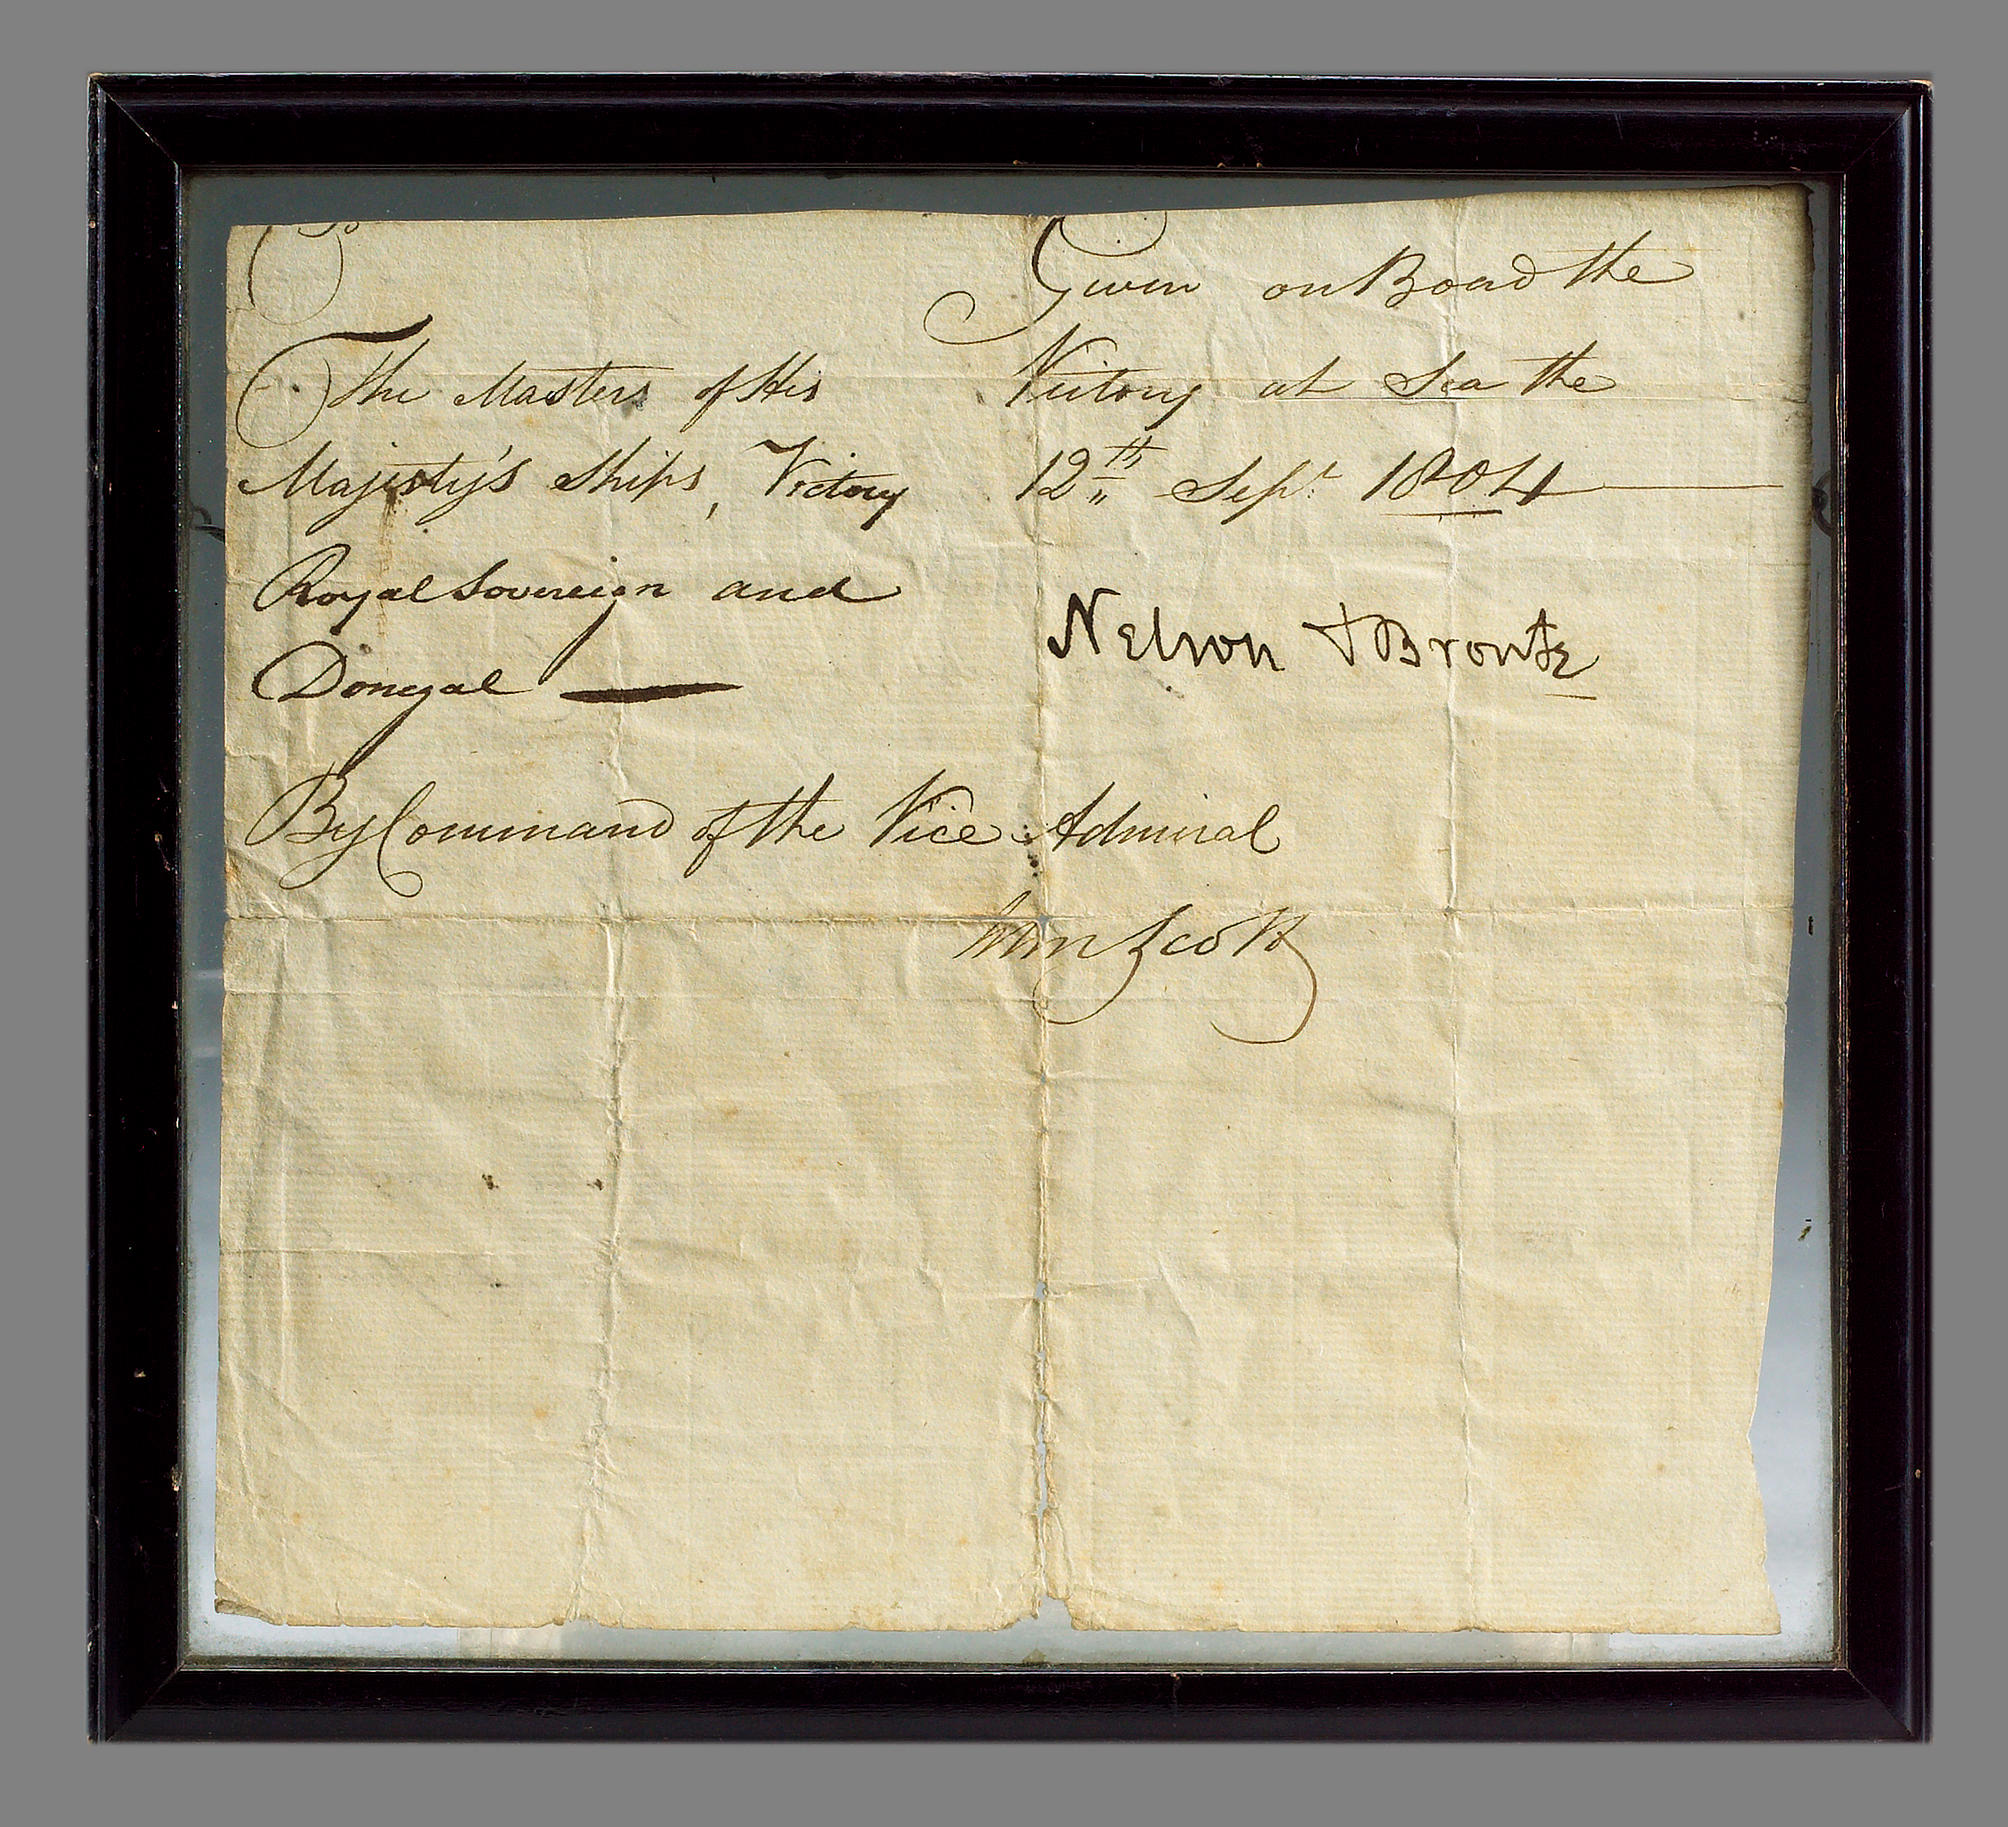 To
The Masters of His
Majesty's Ships, Victory
Royal Sovereign and
Donegal —
Given on Board the
Victory at Sea the
12th Sept. 1804 —
Nelson & Bronte
By Command of the Vice Admiral
Wm Scott